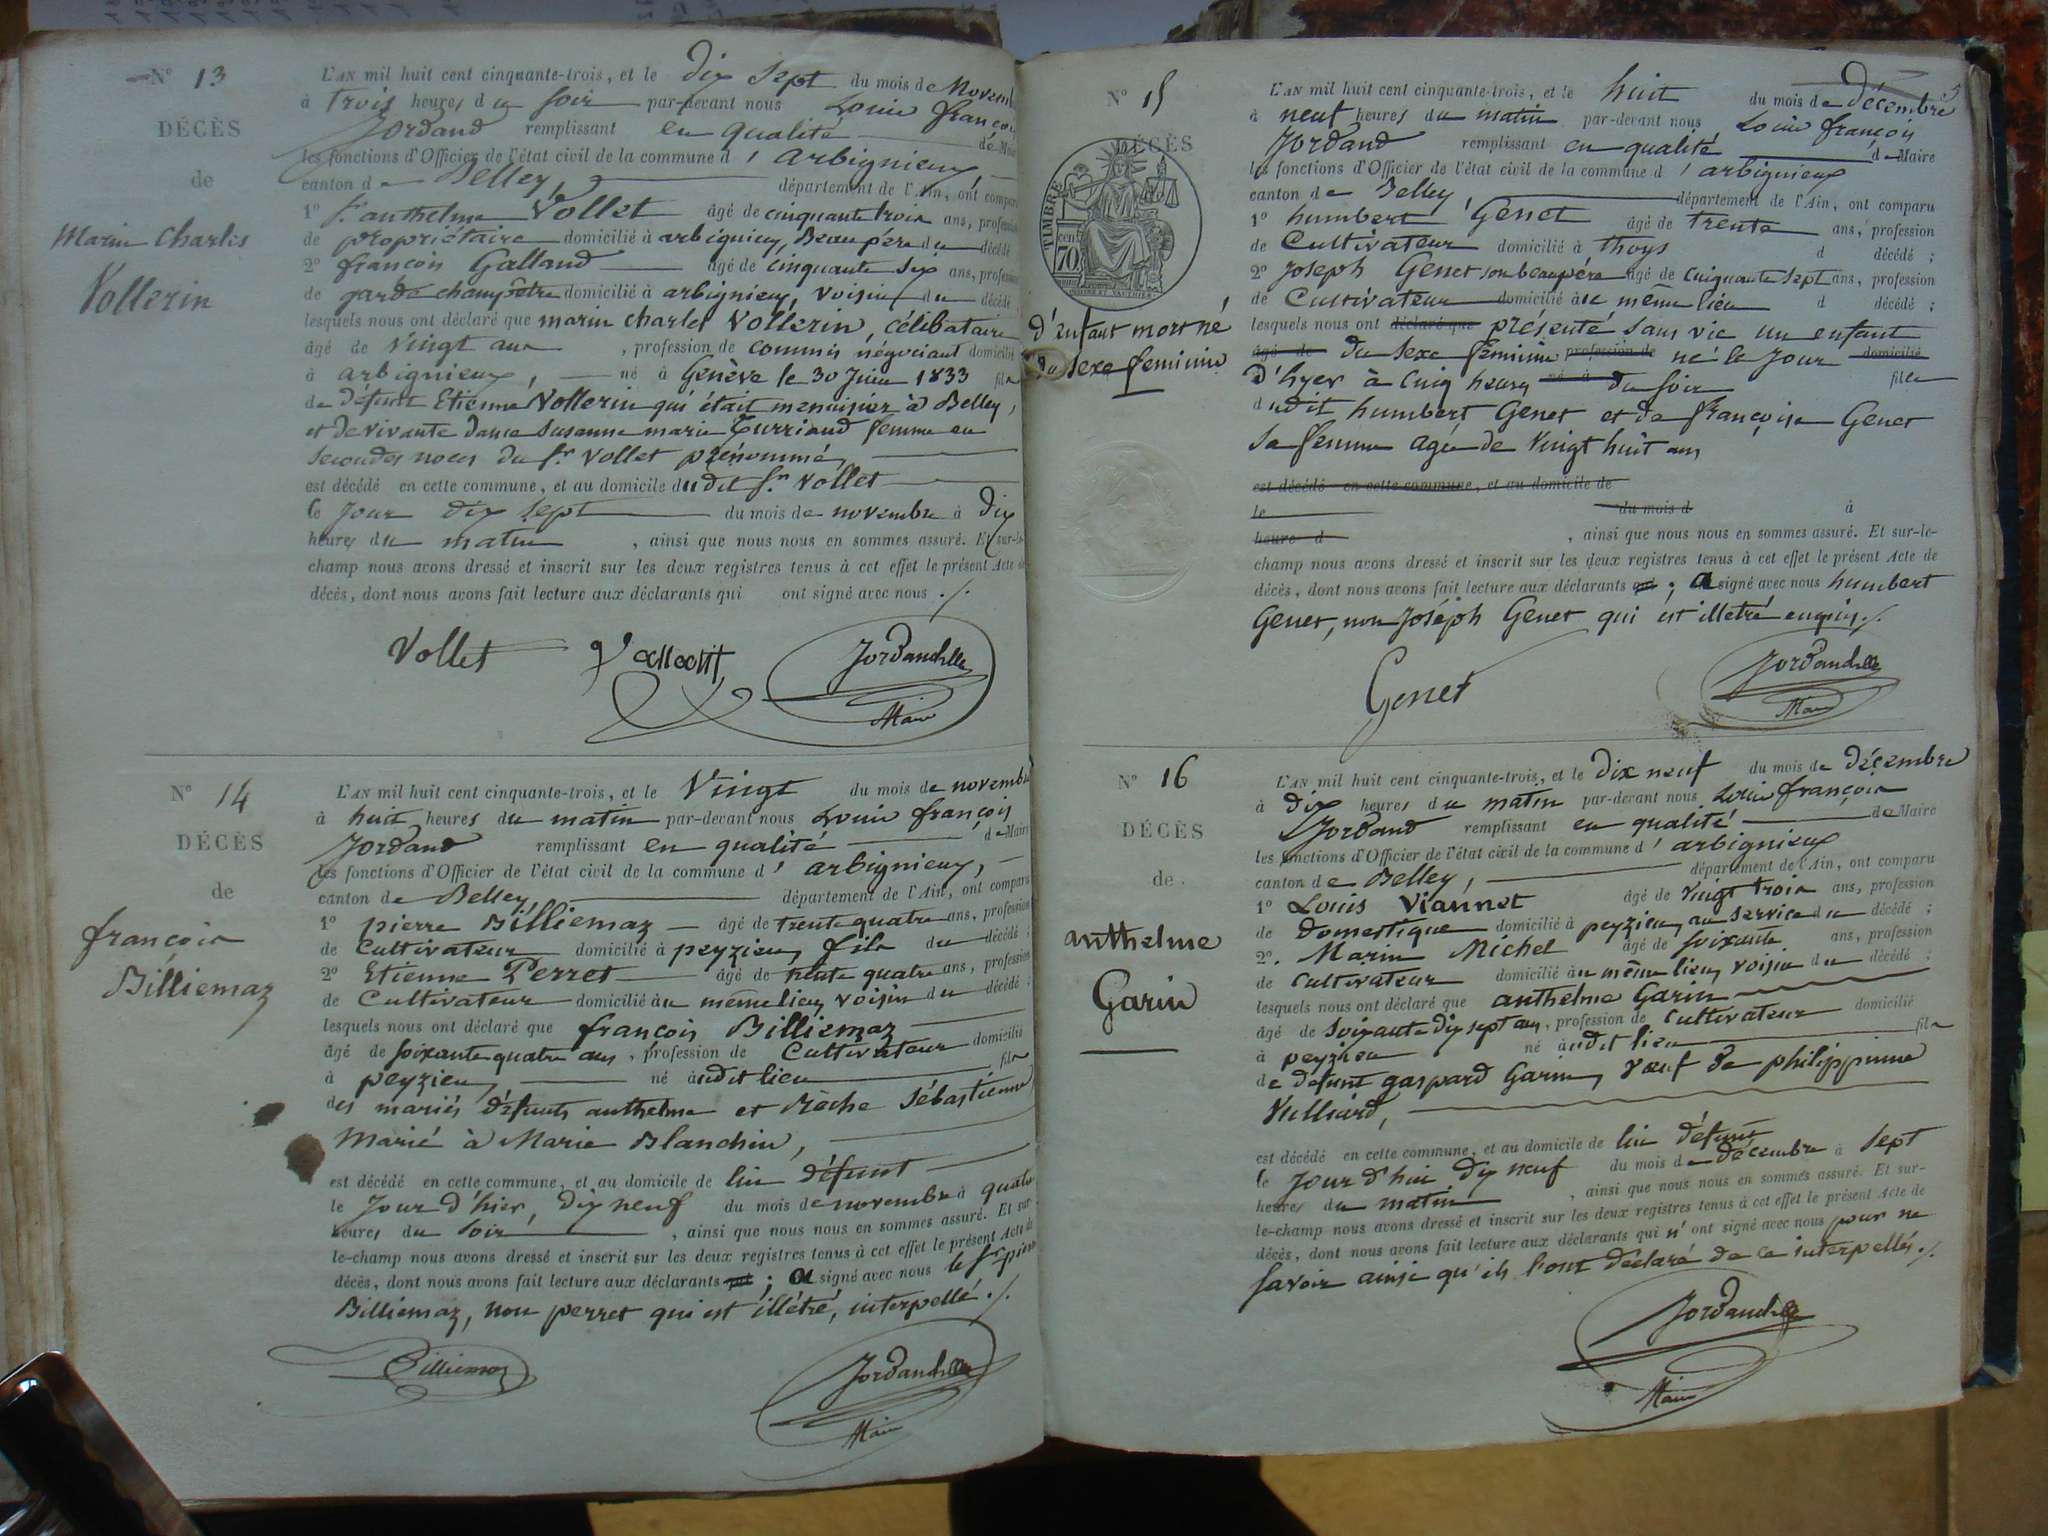 N° 13
DÉCÈS
de
Marin Charles
Vollerin
L'AN mil huit cent cinquante-trois, et le dix sept du mois de Novemb
à trois heures du soir par-devant nous Louis françois
Jordand remplissant en qualité de Maire
les fonctions d'Officier de l'état civil de la commune d'arbignieux,
canton de Belley, département de l'Ain, ont comparu
1° S. anthelme Vollet âgé de cinquante trois ans, profession
de propriétaire domicilié à arbignieux, Beau père du décédé
2° françois Galland âgé de cinquante six ans, profession
de garde champêtre domicilié à arbignieux, voisin du décédé
lesquels nous ont déclaré que marin charles Vollerin, célibataire
âgé de vingt ans, profession de commis négociant domicilié
à arbignieux, né à Genève le 30 Juin 1833 fils
de défunt Etienne Vollerin qui était menuisier à Belley,
et de vivante dame Susanne marie Curriaud femme en
secondes noces du Sr Vollet prénommé,
est décédé en cette commune, et au domicile dudit Sr Vollet
le jour dix sept du mois de novembre à dix
heures du matin, ainsi que nous nous en sommes assuré. Et sur-le-
champ nous avons dressé et inscrit sur les deux registres tenus à cet effet le présent Acte de
décès, dont nous avons fait lecture aux déclarants qui ont signé avec nous ./.
Vollet
Jordand
Maire
N° 14
DÉCÈS
de
françois
Billiemaz
L'AN mil huit cent cinquante-trois, et le Vingt du mois de novembre
à huit heures du matin par-devant nous Louis françois
Jordand remplissant en qualité de Maire
les fonctions d'Officier de l'état civil de la commune d'arbignieux,
canton de Belley, département de l'Ain, ont comparu
1° pierre Billiemaz âgé de trente quatre ans, profession
de Cultivateur domicilié à peyzieu, fils du décédé ;
2° Etienne Perret âgé de trente quatre ans, profession
de Cultivateur domicilié au même lieu, voisin du décédé ;
lesquels nous ont déclaré que françois Billiemaz
âgé de soixante quatre ans, profession de Cultivateur domicilié
à peyzieu, né audit lieu fils
des mariés défunts anthelme et Rèche Sébastienne
Marié à Marie Blanchin,
est décédé en cette commune, et au domicile de lui défunt
le Jour d'hier, dix neuf du mois de novembre à quatre
heures du soir, ainsi que nous nous en sommes assuré. Et sur-
le-champ nous avons dressé et inscrit sur les deux registres tenus à cet effet le présent Acte de
décès, dont nous avons fait lecture aux déclarants qui ; a signé avec nous le Sr pierre
Billiemaz, non perret qui est illétré, interpellé ./.
Billiemaz
Jordand
Maire
5
N° 15
DÉCÈS
TIMBRE
70 cent
d'enfant mort né
du sexe feminin
L'AN mil huit cent cinquante-trois, et le huit du mois de décembre
à neuf heures du matin par-devant nous Louis françois
Jordand remplissant en qualité de Maire
les fonctions d'Officier de l'état civil de la commune d'arbignieux
canton de Belley département de l'Ain, ont comparu
1° humbert Genet âgé de trente ans, profession
de Cultivateur domicilié à Thoys d décédé ;
2° Joseph Genet son beau père âgé de cinquante sept ans, profession
de Cultivateur domicilié à ce même lieu d décédé ;
lesquels nous ont déclaré que présenté sans vie un enfant
âgé de du sexe feminin profession de né le jour domicilié
d'hyer à cinq heures né à du soir fille
dudit humbert Genet et de françoise Genet
sa femme agée de vingt huit ans
est décédé en cette commune, et au domicile de
le du mois d à
heure d , ainsi que nous nous en sommes assuré. Et sur-le-
champ nous avons dressé et inscrit sur les deux registres tenus à cet effet le présent Acte de
décès, dont nous avons fait lecture aux déclarants qui ; a signé avec nous humbert
Genet, non Joséph Genet qui est illetré enquis ./.
Genet
Jordand
Maire
N° 16
DÉCÈS
de
anthelme
Garin
L'AN mil huit cent cinquante-trois, et le dix neuf du mois de décembre
à dix heures du matin par-devant nous Louis françois
Jordand remplissant en qualité de Maire
les fonctions d'Officier de l'état civil de la commune d'arbignieux
canton de Belley, département de l'Ain, ont comparu
1° Louis Viannet âgé de vingt trois ans, profession
de domestique domicilié à peyzieu, au service du décédé ;
2°. Marin Michel âgé de soixante ans, profession
de Cultivateur domicilié au même lieu, voisin du décédé ;
lesquels nous ont déclaré que anthelme Garin
âgé de soixante dix sept ans, profession de Cultivateur domicilié
à peyzieu né audit lieu fils
de défunt gaspard Garin, vœuf de philippinne
Vulliard,
est décédé en cette commune, et au domicile de lui défunt
le Jour d'hui dix neuf du mois de décembre à sept
heures du matin, ainsi que nous nous en sommes assuré. Et sur-
le-champ nous avons dressé et inscrit sur les deux registres tenus à cet effet le présent Acte de
décès, dont nous avons fait lecture aux déclarants qui n'ont signé avec nous pour ne
savoir ainsi qu'ils l'ont déclaré de ce interpellés ./.
Jordand
Maire